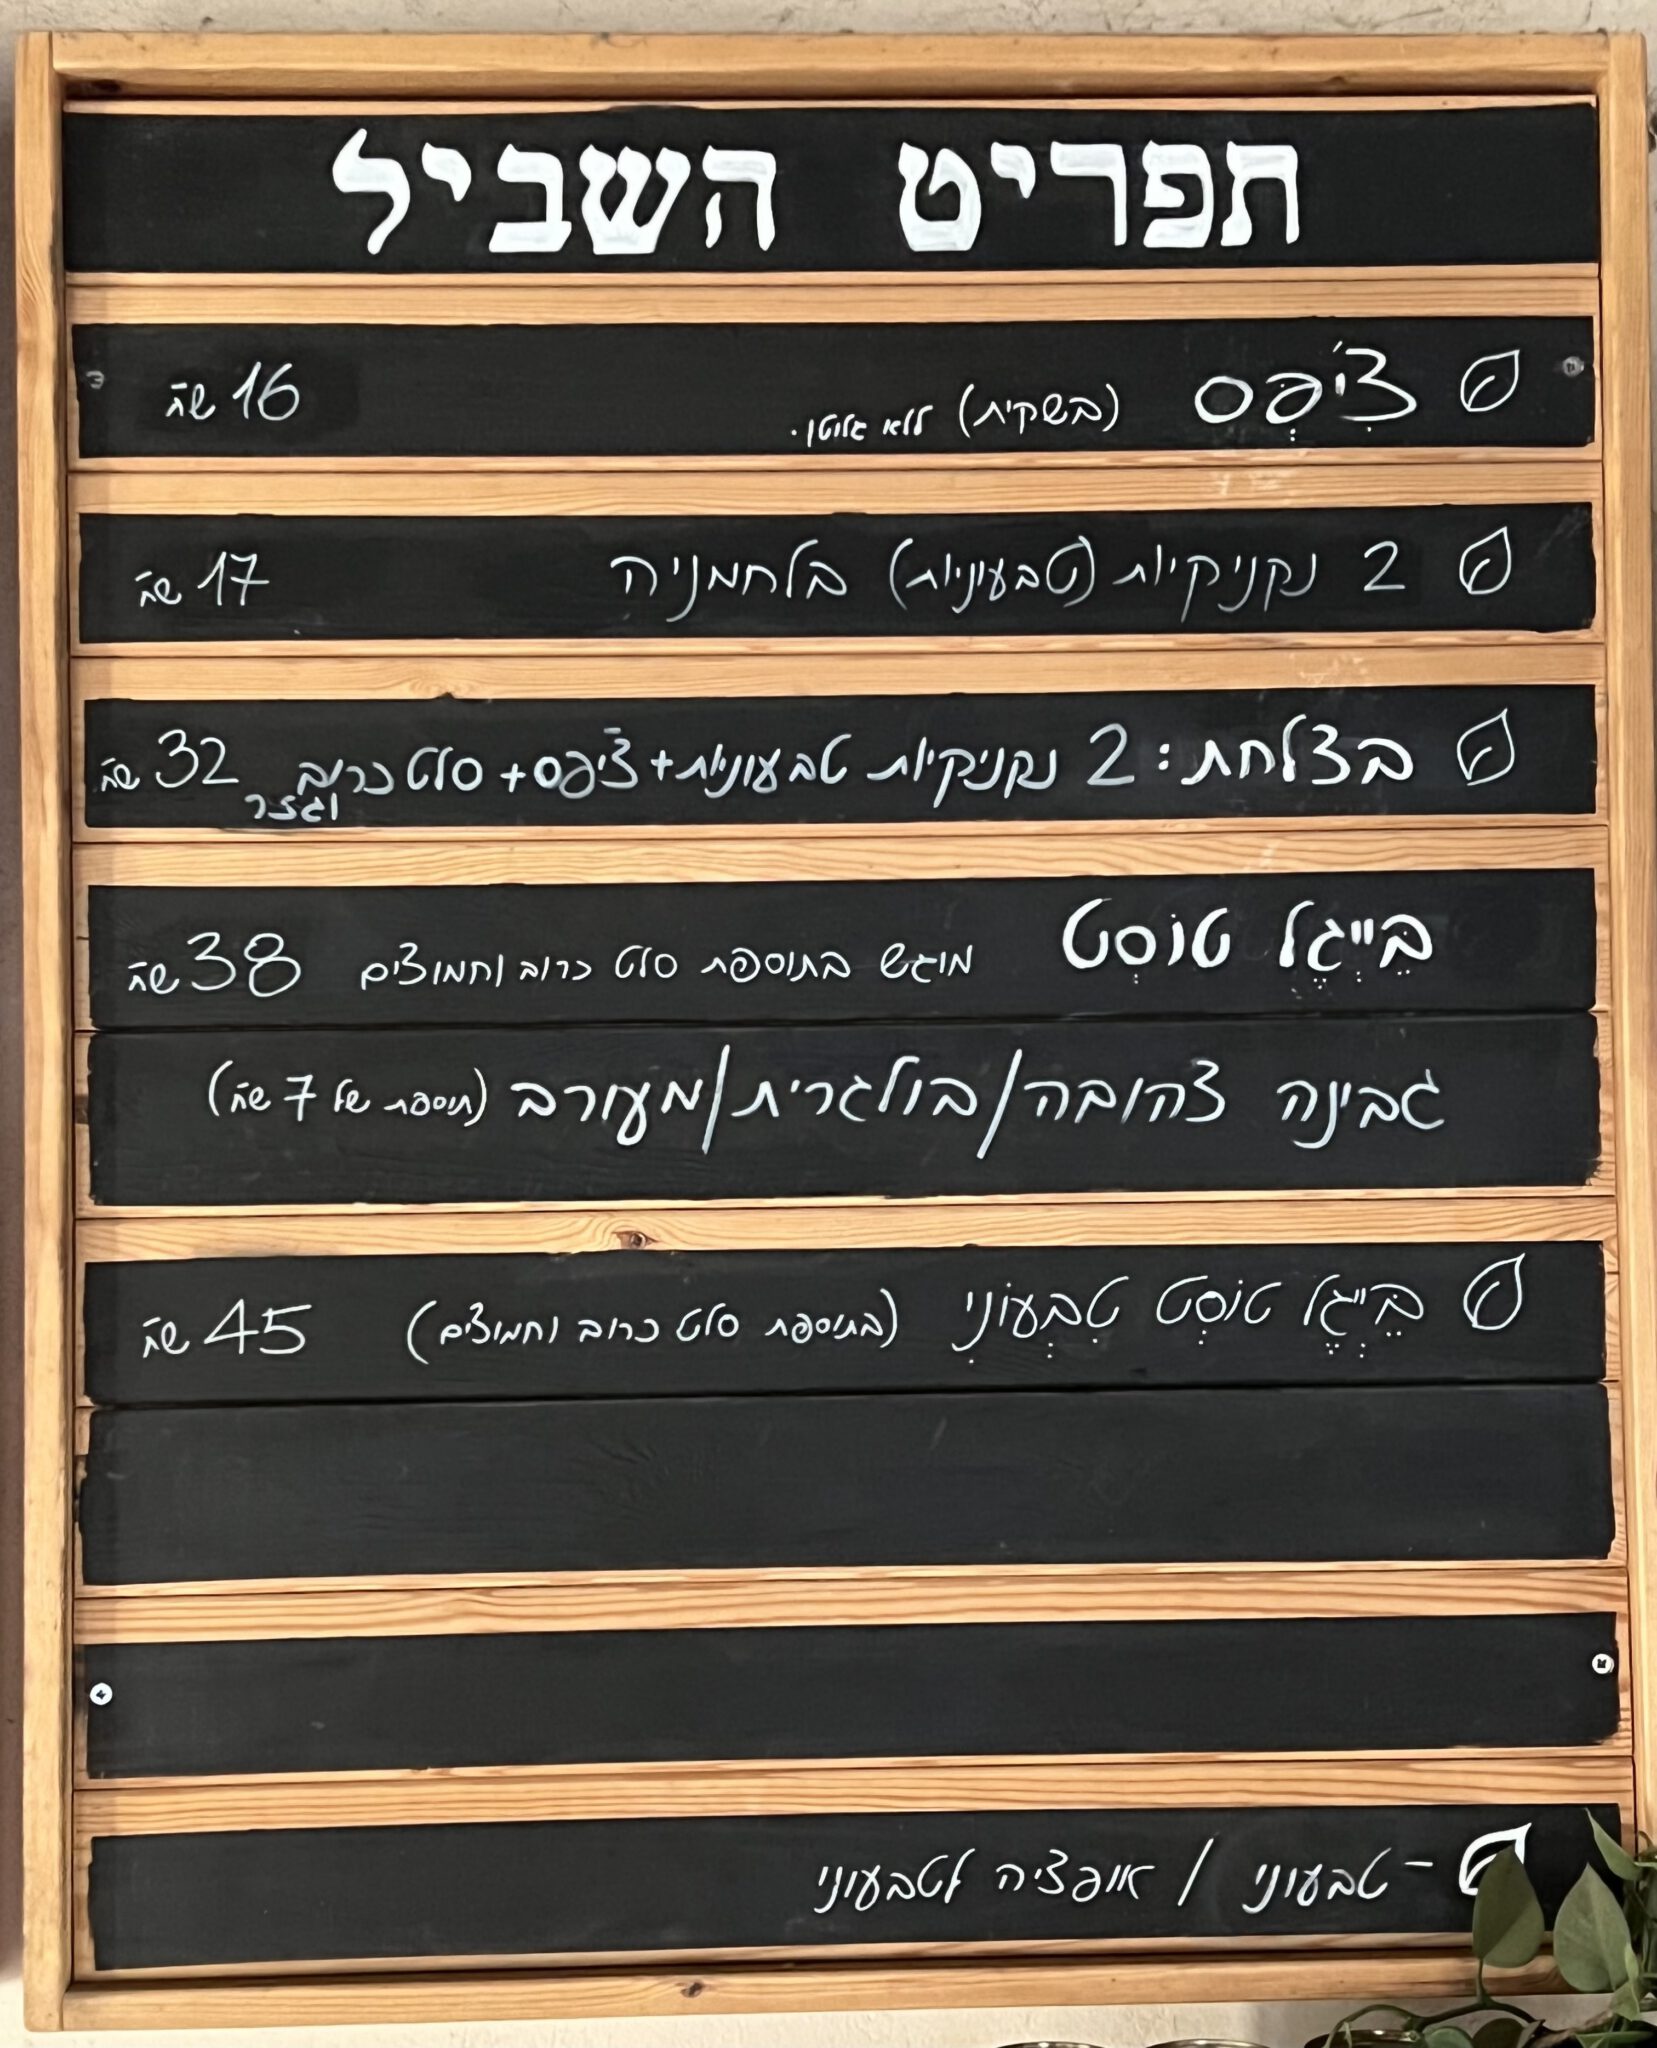 תפריט השביל
צ'יפְּס (בשקית) ללא גלוטן. 16 ש"ח
2 נקניקיות (טבעוניות) בלחמניה 17 ש"ח
בצלחת: 2 נקניקיות טבעוניות + צ'יפס + סלט כרוב וגזר 32 ש"ח
בֵּיְיגֶל טוֹסְט מוגש בתוספת סלט כרוב וחמוצים 38 ש"ח
גבינה צהובה/בולגרית/מעורב (תוספת של 7 ש"ח)
בֵּיְיגֶל טוֹסְט טִבְעוֹנִי (בתוספת סלט כרוב וחמוצים) 45 ש"ח
- טבעוני / אופציה לטבעוני